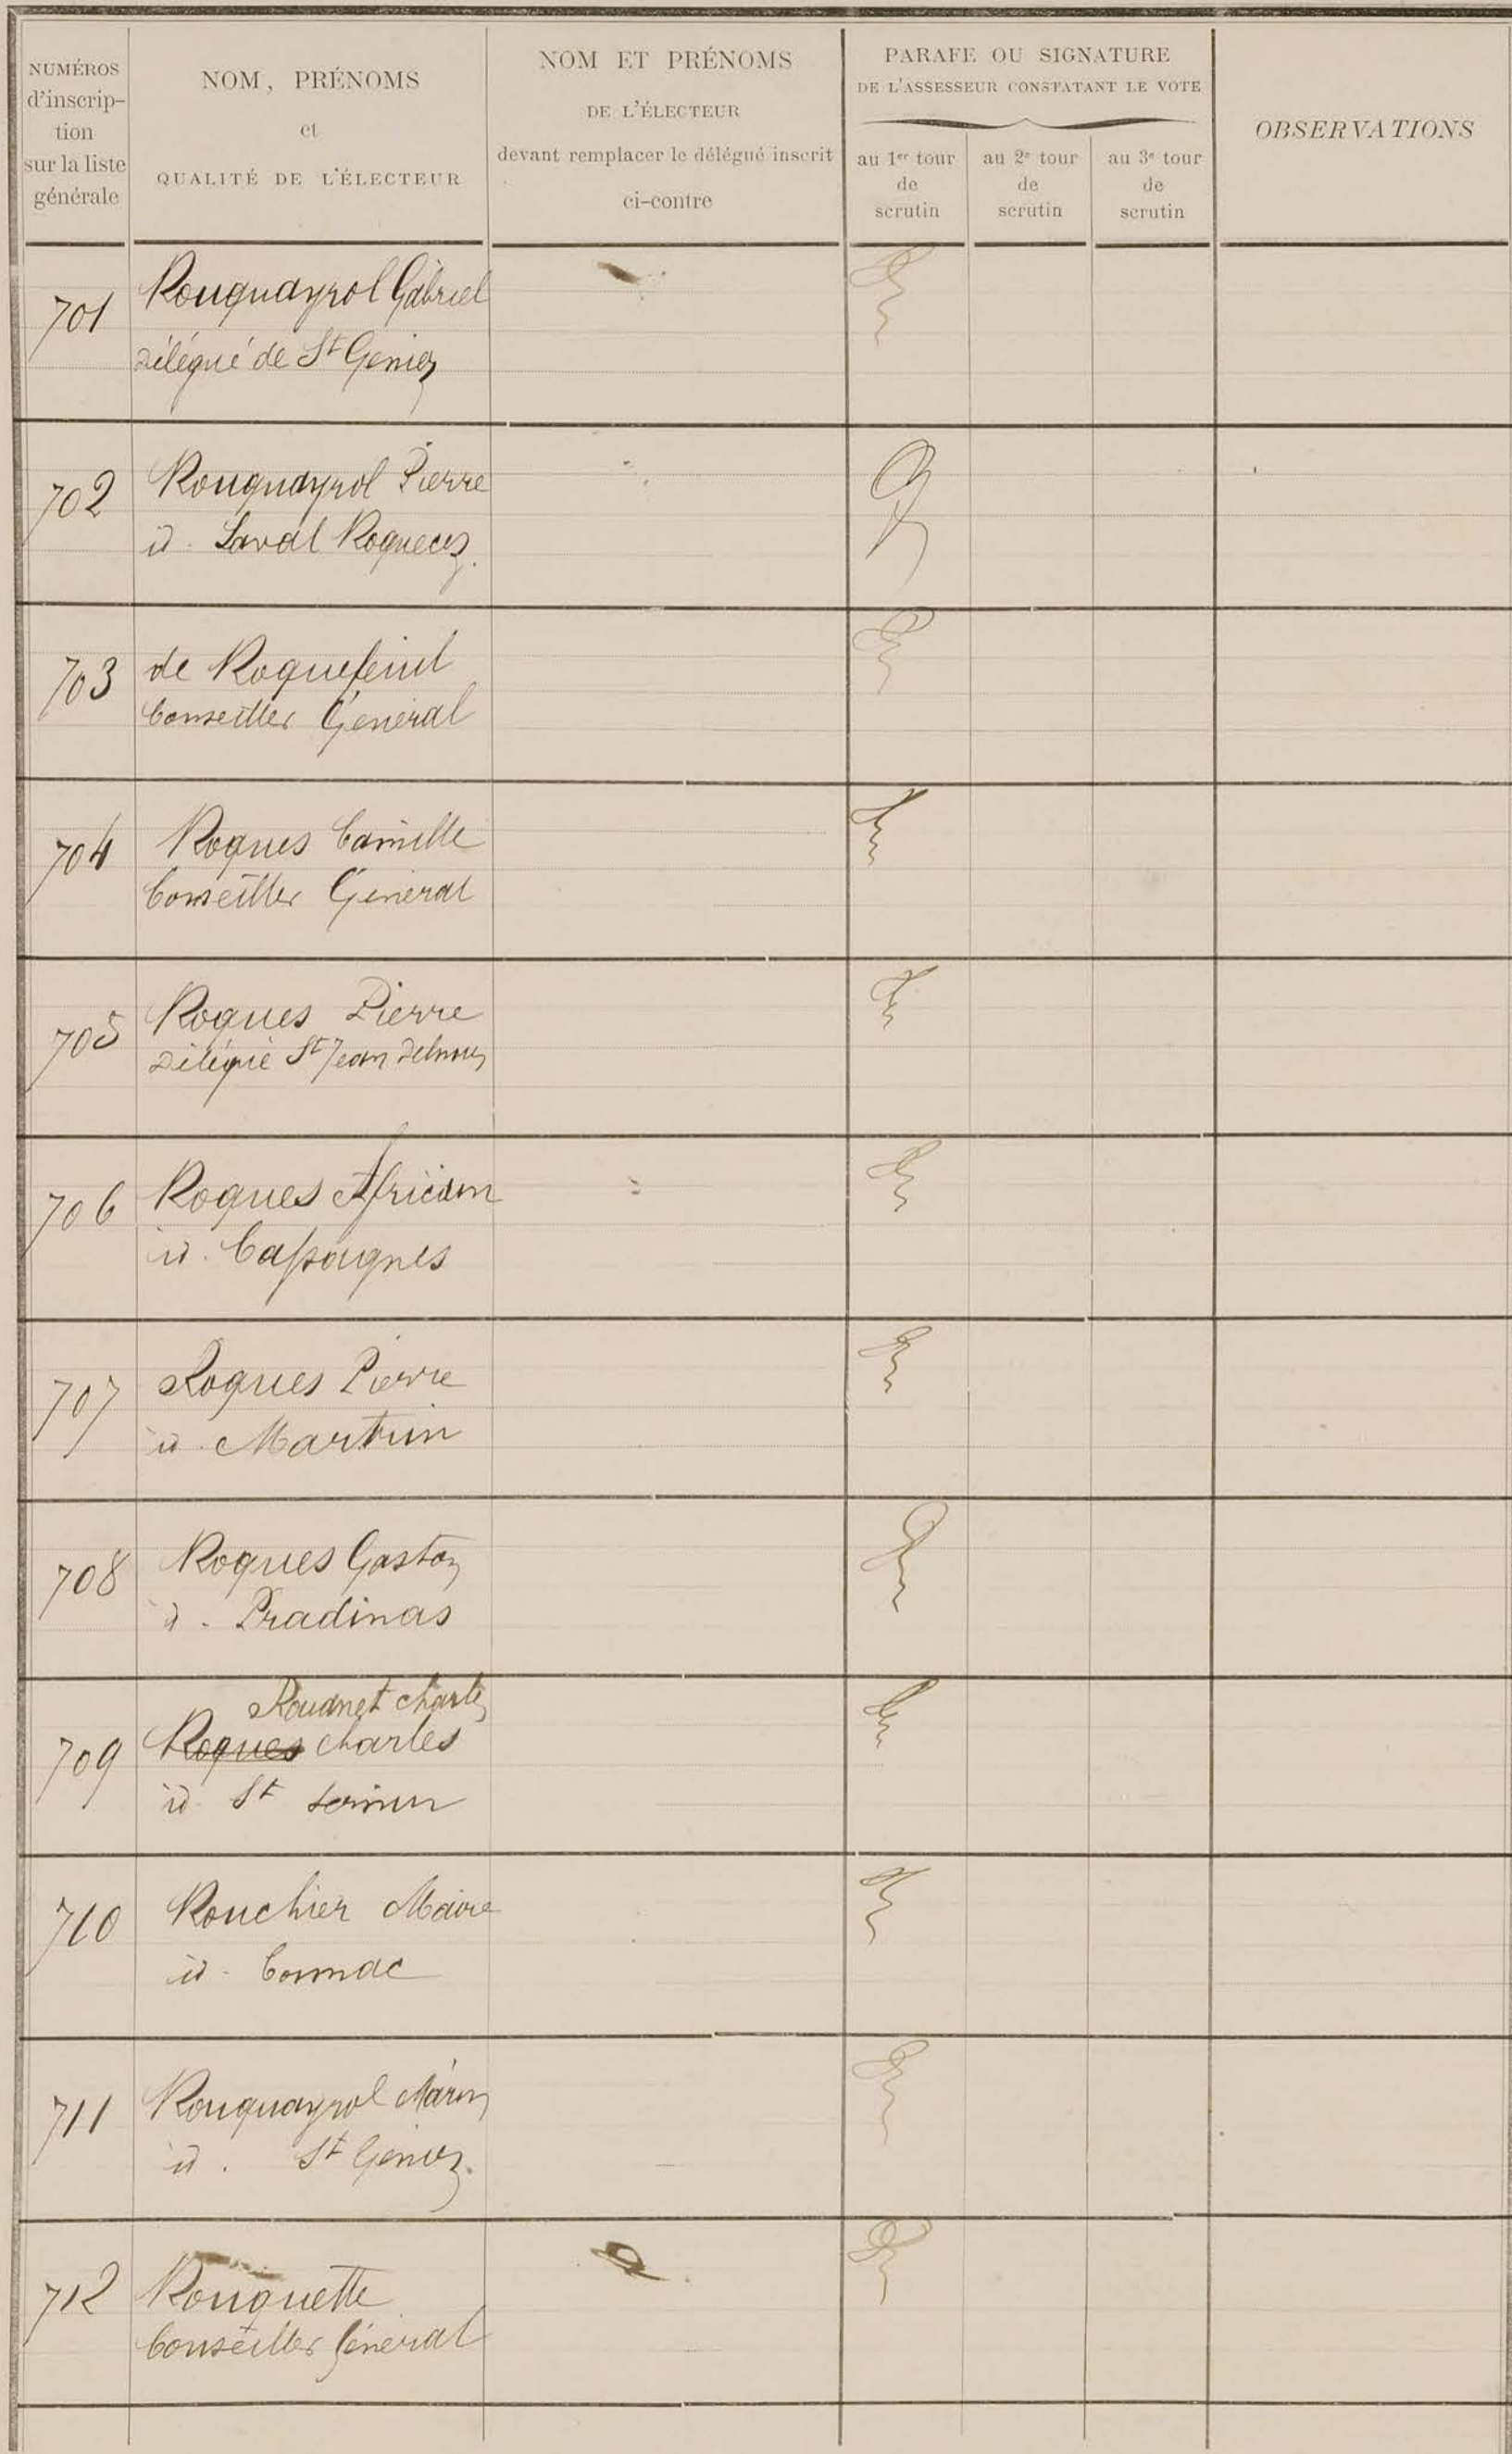 NUMÉROS
d'inscrip-
tion
sur la liste
générale
NOM, PRÉNOMS
et
QUALITÉ DE L'ÉLECTEUR
NOM ET PRÉNOMS
DE L'ÉLECTEUR
devant remplacer le délégué inscrit
ci-contre
PARAFE OU SIGNATURE
DE L'ASSESSEUR CONSTATANT LE VOTE
au 1er tour
de
scrutin
au 2e tour
de
scrutin
au 3e tour
de
scrutin
OBSERVATIONS
701
Rouquayrol Gabriel
Délégué de St Geniez
702
Rouquayrol Pierre
id. Laval Roquecez.
703
de Roquefeuil
Conseiller Général
704
Roques Camille
Conseiller Général
705
Roques Pierre
Délégué St Jean Delnous
706
Roques African
id. Cassagnes
707
Roques Pierre
id. Martrin
708
Roques Gaston
id. Pradinas
709
Rouanet Charles
Roques Charles
id. St Sernin
710
Rouchier Maire
id. Connac
711
Rouquayrol Marin
id. St Geniez.
712
Rouquette
Conseiller Général